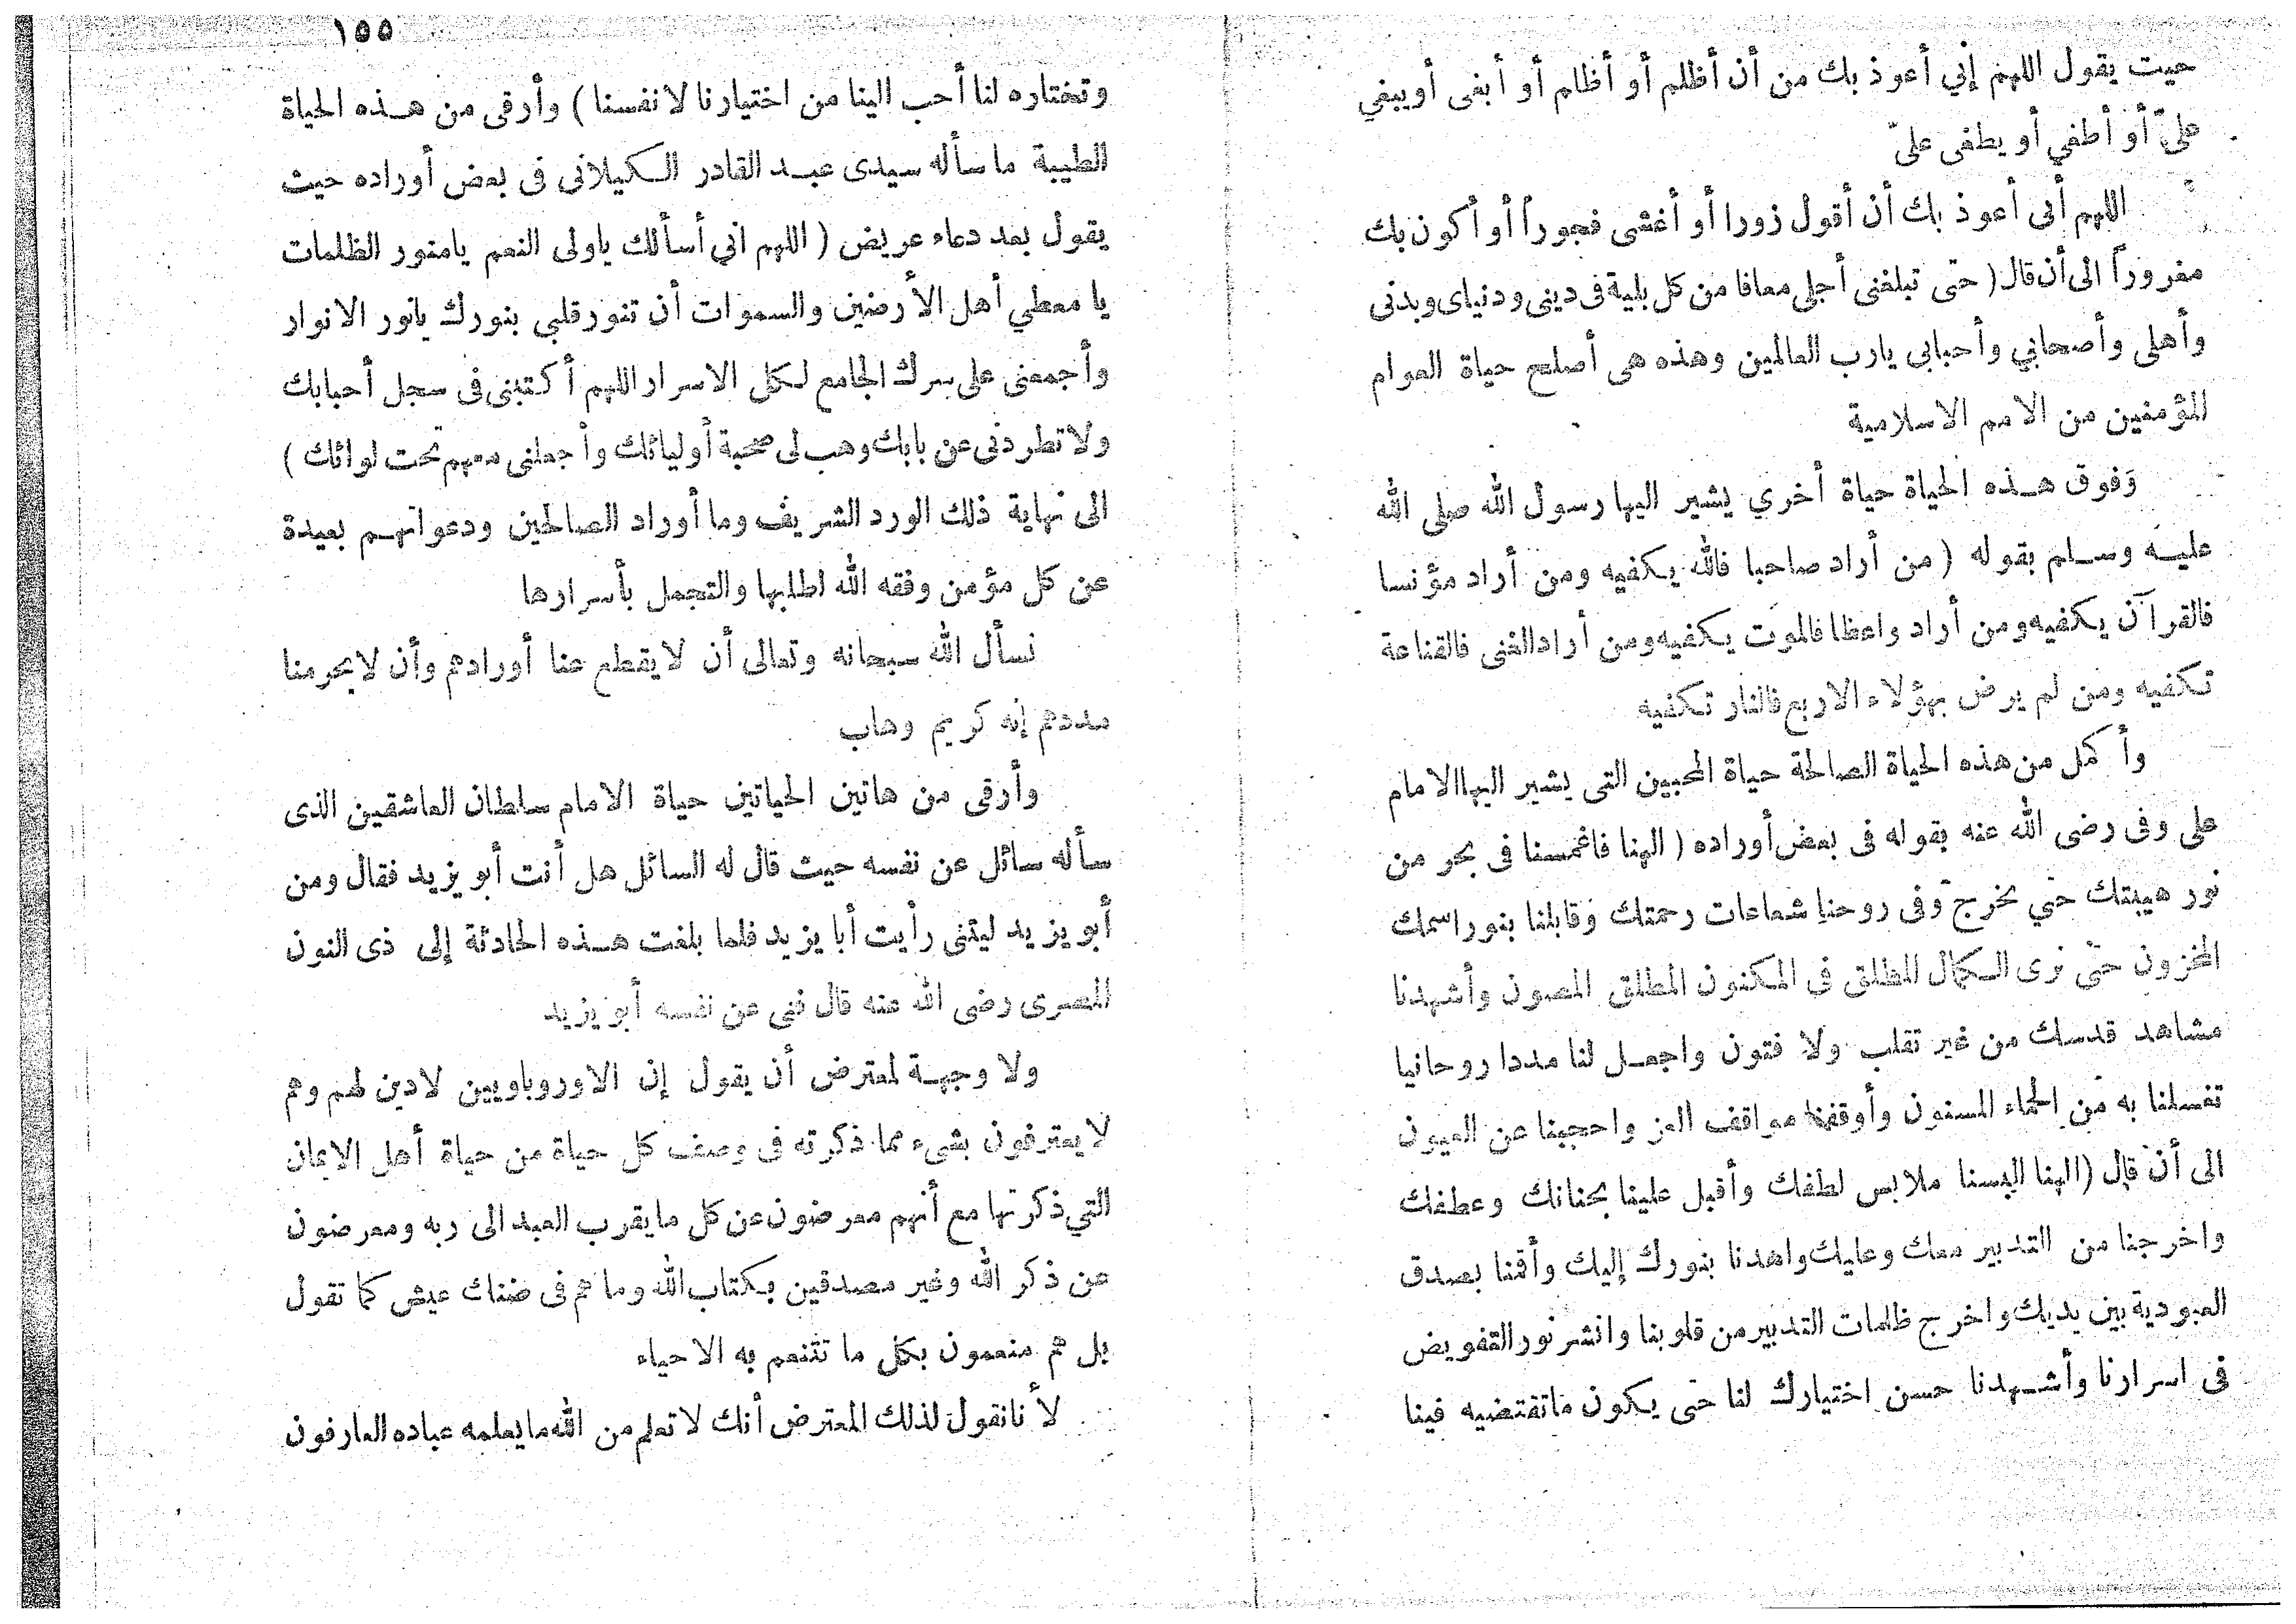 حيت يقول اللهم إني أعوذ بك من أن أظلم أو أظلم أو أبغى أو يبغي
عليّ أو أطغي أو يطغى عليّ
اللهم أنى أعوذ بك أن أقول زورا أو أغشى فجوراً أو أكون بك
مغروراً الى أن قال ( حتى تبلغنى أجلى معافا من كل بلية فى دينى ودنياى وبدنى
وأهلى وأصحابي وأحبابى يارب العالمين وهذه هى أصلح حياة العوام
المؤمنين من الامم الاسلامية
وفوق هـذه الحياة حياة أخري يشير اليها رسول الله صلى الله
عليـه وسـلم بقوله ( من أراد صاحبا فالله يكفيه ومن أراد مؤنسا
فالقرآن يكفيه ومن أراد واعظا فالموت يكفيه ومن أراد الغنى فالقناعة
تكفيه ومن لم يرض بهؤلاء الاربع فالنار تكفيه
وأكمل من هذه الحياة الصالحة حياة المحبين التى يشير اليها الامام
على وفى رضى الله عنه بقوله فى بعض أوراده ( الهنا فاغمسنا فى بحر من
نور هيبتك حتي نخرج وفى روحنا شعاعات رحمتك وقابلنا بنور اسمك
المخزون حتى نرى الكمال المطلق فى المكنون المطلق المصون وأشهدنا
مشاهد قدسك من غير تقلب ولا فتون واجعـل لنا مددا روحانيا
تغسلنا به من الحماء المسنون وأوقفنا مواقف العز واحجبنا عن العيون
الى أن قال ( الهنا البسنا ملابس لطفك وأقبل علينا بحنانك وعطفك
واخرجنا من التدبير معك وعليك واهدنا بنورك إليك وأقمنا بصدق
العبودية بين يديك واخرج ظلمات التدبير من قلوبنا وانشر نور التفويض
فى اسرارنا وأشـهدنا حسن اختيارك لنا حتى يكون ما تقتضيه فينا
١٥٥
وتختاره لنا أحب الينا من اختيارنا لانفسنا ) وأرقى من هـذه الحياة
الطيبة ما سأله سيدى عبـد القادر الـكيلانى فى بعض أوراده حيث
يقول بعد دعاء عريض ( اللهم اني أسألك ياولى النعم يامنور الظلمات
يا معطي أهل الأرضين والسموات أن تنور قلبي بنورك يانور الانوار
وأجمعنى على سرك الجامع لـكل الاسرار اللهم أكتبنى فى سجل أحبابك
ولا تطردنى عن بابك وهب لى صحبة أوليائك وأجعلنى معهم تحت لوائك )
الى نهاية ذلك الورد الشريف وما أوراد الصالحين ودعواتهـم بعيدة
عن كل مؤمن وفقه الله لطلبها والتجمل بأسرارها
نسأل الله سبحانه وتعالى أن لا يقطع عنا أورادهم وأن لا يحرمنا
مددهم إنه كريم وهاب
وأرقى من هاتين الحياتين حياة الامام سلطان العاشقين الذى
سأله سائل عن نفسه حيث قال له السائل هل أنت أبو يزيد فقال ومن
أبو يزيد ليتنى رأيت أبا يزيد فلما بلغت هـذه الحادثة إلى ذى النون
المصرى رضى الله عنه قال فنى عن نفسه أبو يزيد
ولا وجهـة لمعترض أن يقول إن الاوروباويين لادين لهم وهم
لا يعترفون بشىء مما ذكرته فى وصف كل حياة من حياة أهل الايمان
التي ذكرتها مع أنهم معرضون عن كل ما يقرب العبد الى ربه ومعرضون
عن ذكر الله وغير مصدقين بكتاب الله وما هم فى ضنك عيش كما تقول
بل هم منعمون بكل ما تتنعم به الاحياء
لأنا نقول لذلك المعترض أنك لا تعلم من الله ما يعلمه عباده العارفون